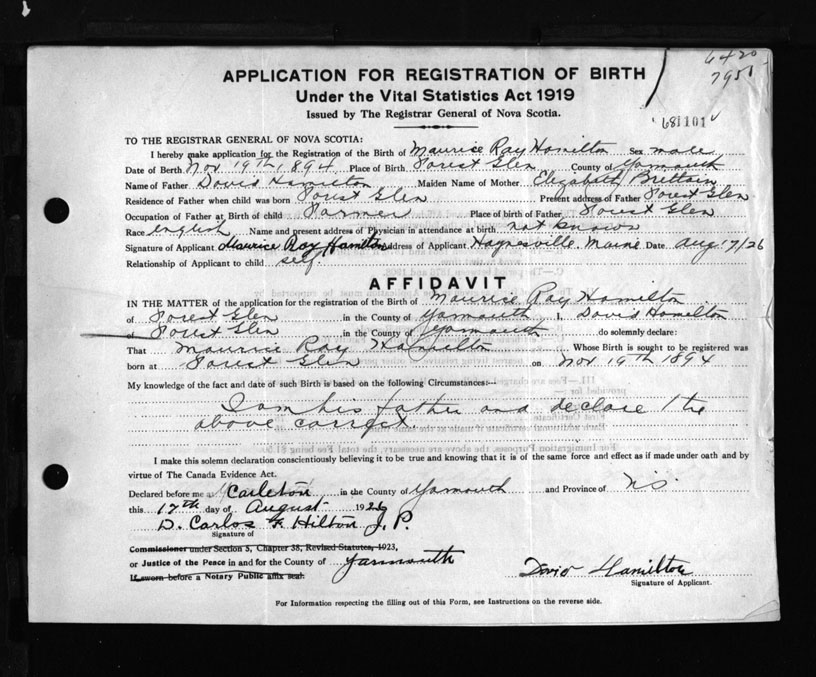 6420
7951
APPLICATION FOR REGISTRATION OF BIRTH
Under the Vital Statistics Act 1919
Issued by The Registrar General of Nova Scotia.
TO THE REGISTRAR GENERAL OF NOVA SCOTIA:
I hereby make application for the Registration of the Birth of Maurice Ray Hamilton Sex male
Date of Berth Nov 19th, 1894 Place of Birth Forest Glen County of Yarmouth
Name of Father David Hamilton Maiden Name of Mother Elizabeth Brittain
Residence of Father when child was born Forest Glen Present address of Father Forest Glen
Occupation of Father at Birth of child Farmer Place of birth of Father Forest Glen
Race english Name and present address of Physician in attendance at birth not known
Signature of Applicant Maurice Ray Hamilton Address of Applicant Haynesville, Maine Date Aug 17/26
Relationship of Applicant to child self.
AFFIDAVIT
IN THE MATTER of the application for the registration of the Birth of Maurice Ray Hamilton
of Forest Glen in the County of Yarmouth I, David Hamilton
of Forest Glen in the County of Yarmouth do solemnly declare:
That Maurice Ray Hamilton Whose Birth is sought to be registered was
born at Forest Glen on Nov 19th 1894
My knowledge of the fact and date of such Birth is based on the following Circumstances:—
I am his father and declare the
above correct.
I make this solemn declaration conscientiously believing it to be true and knowing that it is of the same force and effect as if made under oath and by
virtue of The Canada Evidence Act.
Declared before me at Carleton in the County of Yarmouth and Province of N.S.
this 17th day of August 1926
D. Carlos F. Hilton J. P.
Signature of
Commissioner under Section 5, Chapter 38, Revised Statutes, 1923,
or Justice of the Peace in and for the County of Yarmouth
If sworn before a Notary Public affix seal.
David Hamilton
Signature of Applicant.
For Information respecting the filling out of this Form, see Instructions on the reverse side.